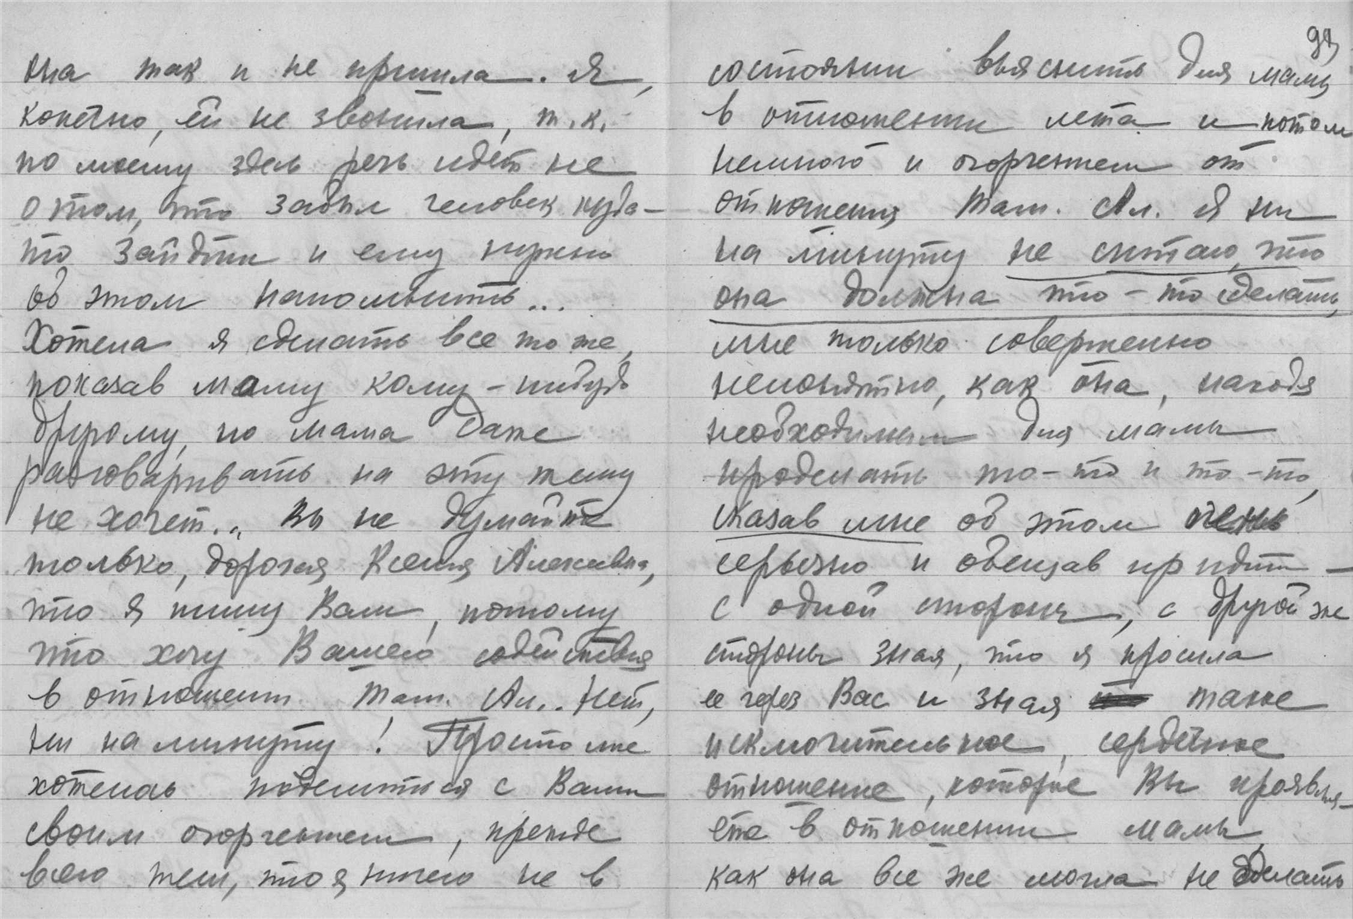 она так и не пришла. Я,
конечно, ей не звонила, т.к.
по моему здесь речь идет не
о том, что забыл человек куда-
то зайдти и ему нужно
об этом напомнить...
Хотела я сделать все то же,
показав маму кому-нибудь
другому, но мама даже
разговаривать на эту тему
не хочет... Вы не думайте
только, дорогая Ксения Алексеевна,
что я пишу Вам, потому
что хочу Вашего содействия
в отношении Тат. Ал.. Нет,
ни на минуту! Просто мне
хотелось поделиться с Вами
своим огорчением, прежде
всего тем, что я ничего не в
состоянии выяснить для мамы
в отношении лета и потом
немного и огорчением от
отношения Тат. Ал. Я ни
на минуту не считаю, что
она должна что-то сделать,
мне только совершенно
непонятно, как она, находя
необходимым для мамы
проделать то-то и то-то,
сказав мне об этом очень
серьезно и обещав придти –
с одной стороны, с другой же
стороны зная, что я просила
ее через Вас и зная также
исключительное, сердечное
отношение, которое Вы проявля-
ете в отношении мамы,
как она все же могла не сделать